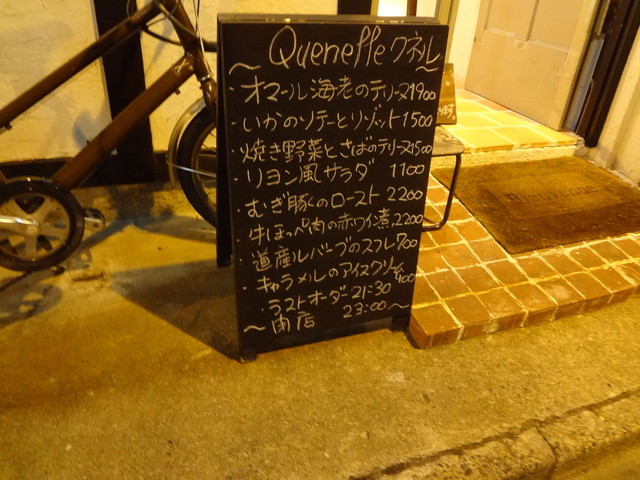 Quenelle クネル
・オマール海老のテリーヌ1900
・いかのソテーとリゾット1500
・焼き野菜とさばのテリーヌ1500
・リヨン風サラダ 1100
・むぎ豚のロースト 2200
・牛ほっぺ肉の赤ワイン煮 2200
・道産ルバーブのスフレ700
・キャラメルのアイスクリーム400
・ラストオーダー21:30
〜閉店 23:00〜